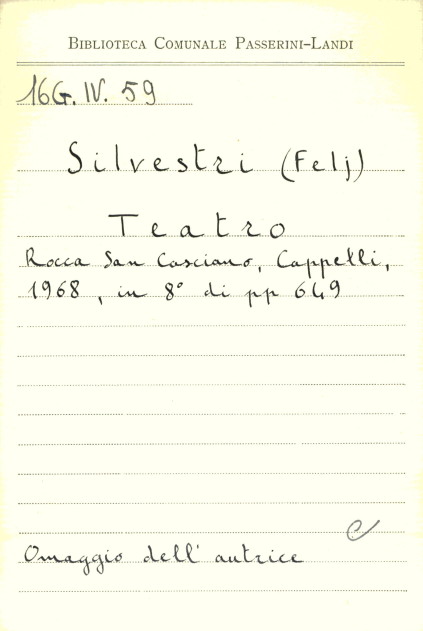 BIBLIOTECA COMUNALE PASSERINI-LANDI
16G. IV. 59
Silvestri (Felj)
Teatro
Rocca San Casciano, Cappelli,
1968, in 8° di pp 649
Omaggio dell' autrice